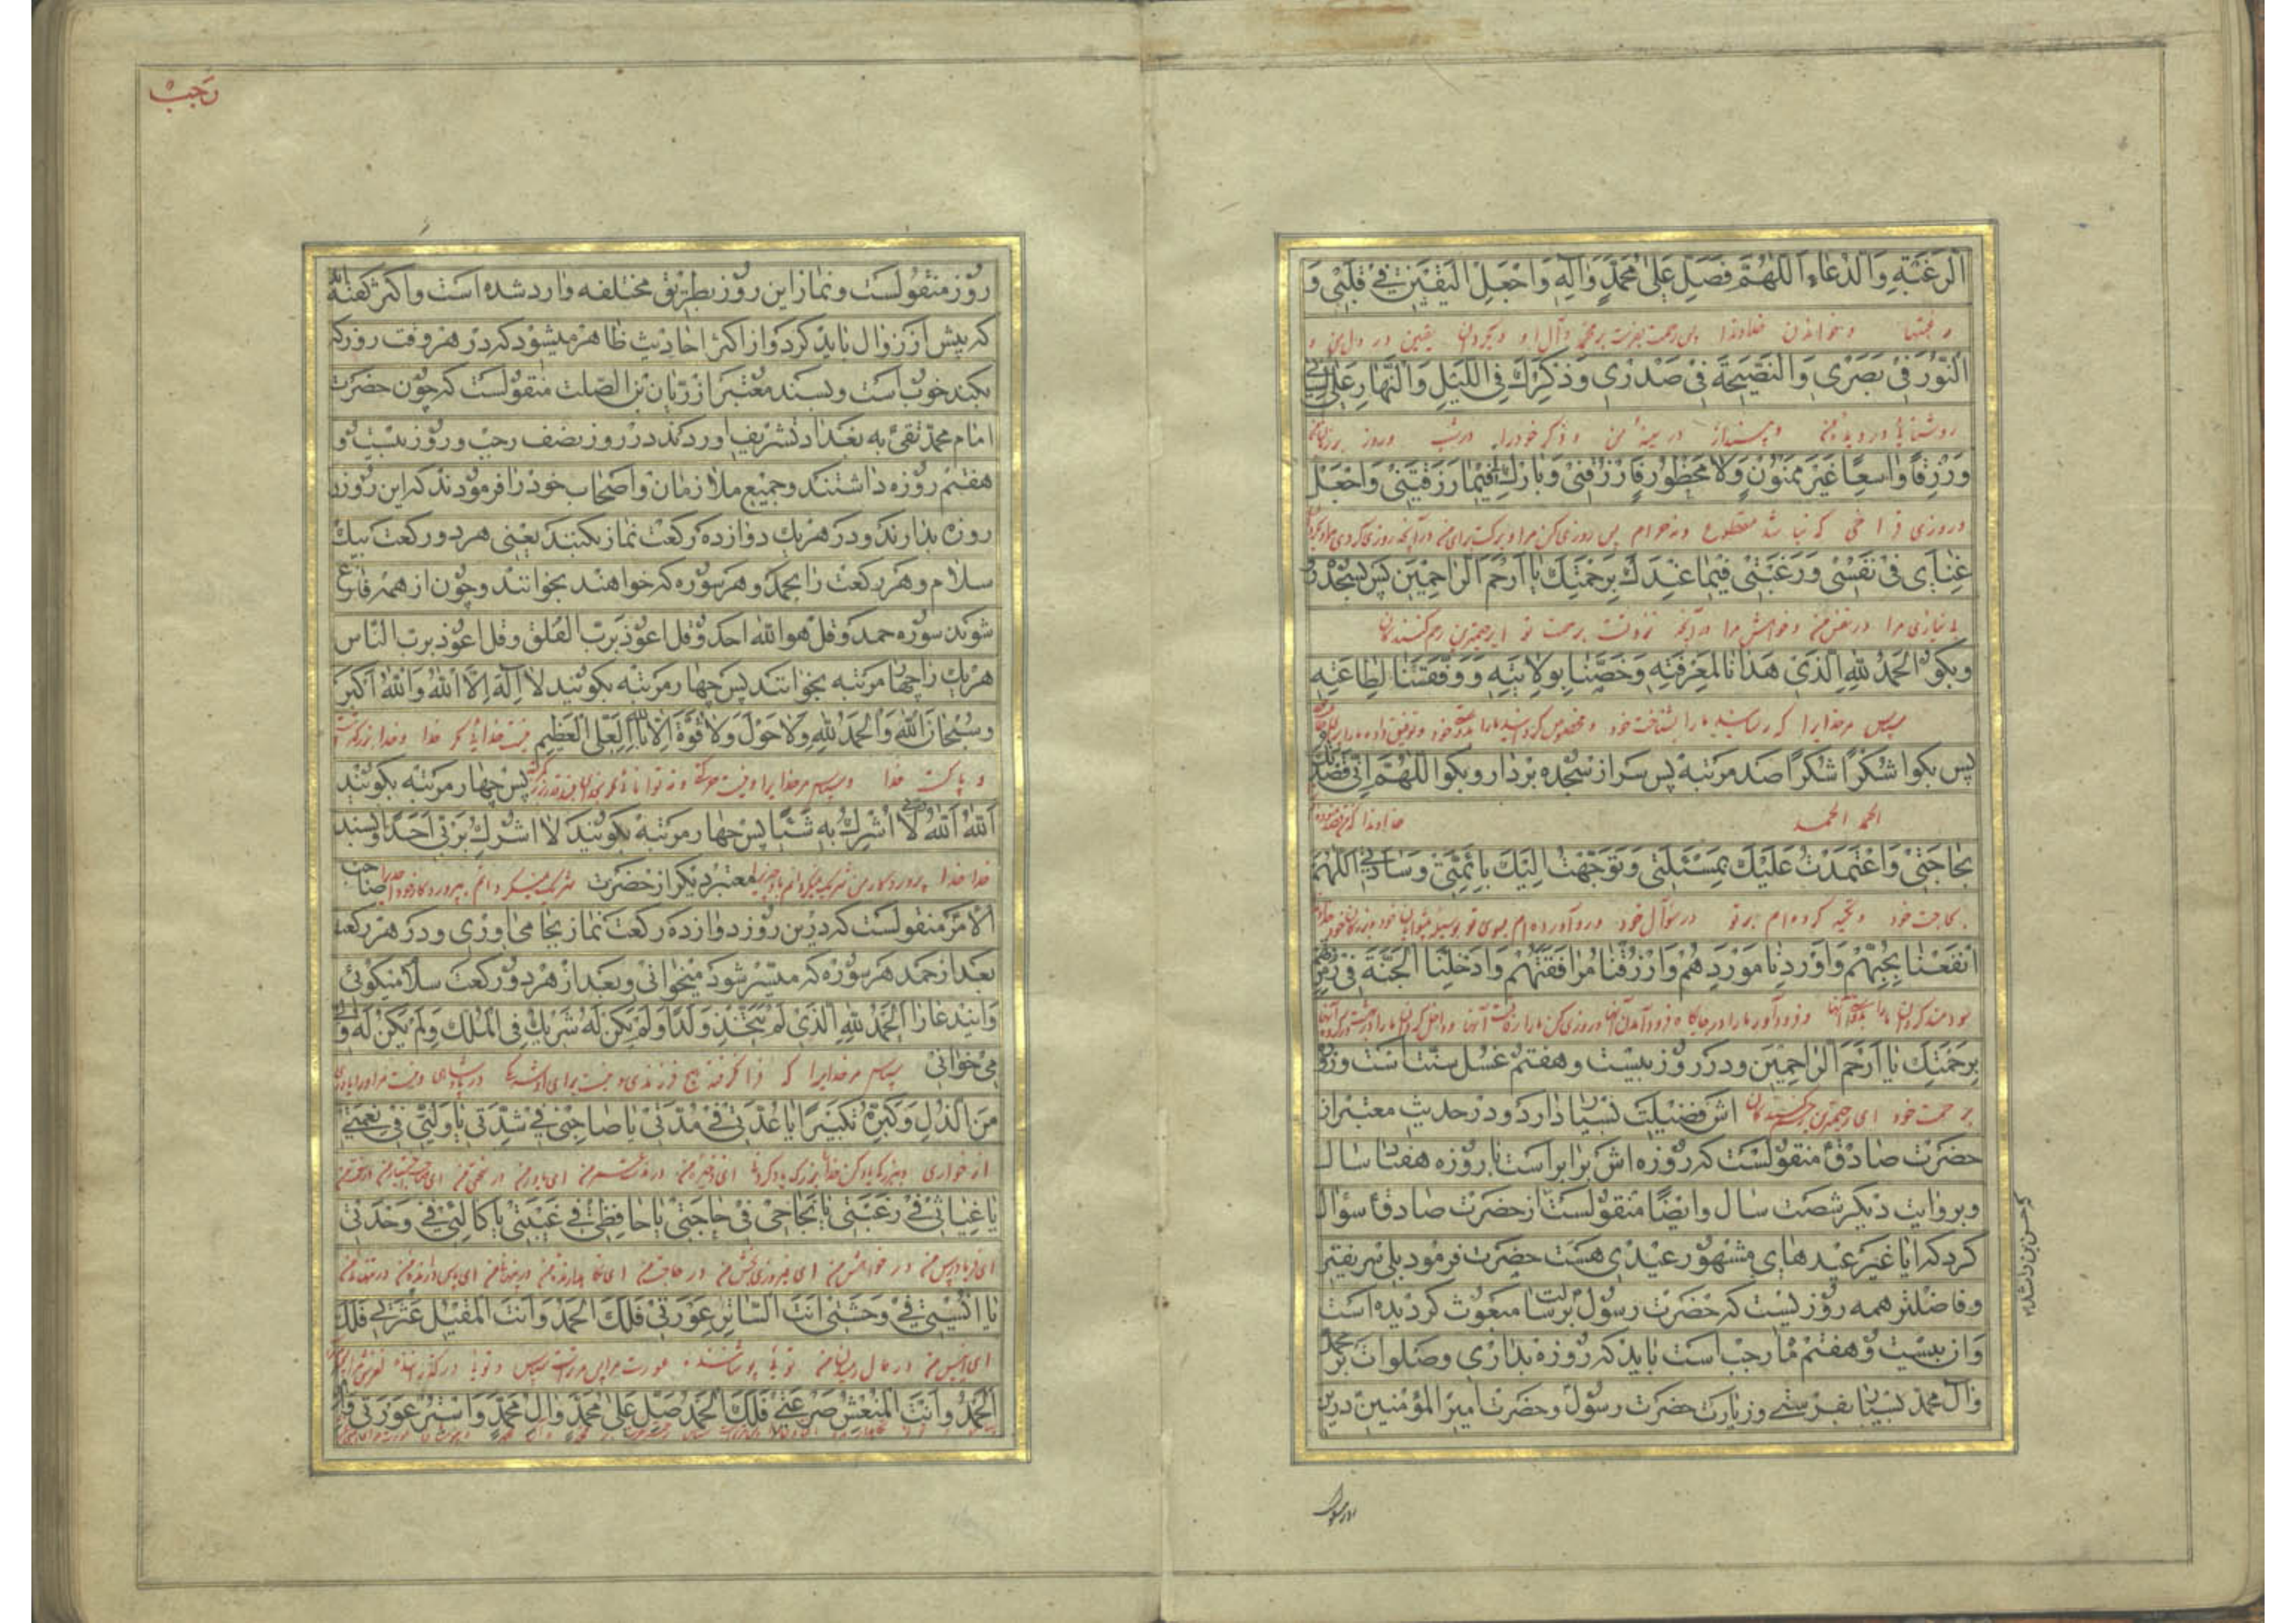 الرَّغْبَةِ وَالدُّعَاءِ اَللّٰهُمَّ فَصَلِّ عَلٰى مُحَمَّدٍ وَآلِهِ وَاجْعَلِ الْيَقِيْنَ فِيْ قَلْبِيْ وَ
و خواندن خداوندا پس رحمت بفرست بر محمد و آل او و بگردان یقین در دل من و
النُّوْرَ فِيْ بَصَرِيْ وَالنَّصِيْحَةَ فِيْ صَدْرِيْ وَذِكْرَكَ فِي اللَّيْلِ وَالنَّهَارِ عَلٰى لِسَانِيْ
روشنائی در دیده من در سینه من و ذکر خود را در شب و روز بر زبان من
وَرِزْقًا وَاسِعًا غَيْرَ مَمْنُوْنٍ وَلَا مَحْظُوْرٍ فَارْزُقْنِيْ وَبَارِكْ لِيْ فِيْمَا رَزَقْتَنِيْ وَاجْعَلْ
و روزی فراخی که نباشد مقطوع و نه حرام پس روزی کن مرا و برکت برای من در آنچه روزی کردی مرا و بگردان
غِنَايَ فِيْ نَفْسِيْ وَرَغْبَتِيْ فِيْمَا عِنْدَكَ بِرَحْمَتِكَ يَا اَرْحَمَ الرَّاحِمِيْنَ پس بسجده رو
بی نیازی مرا در نفس من و خواهش مرا در آنچه نزد تست برحمت تو ای رحیمترین رحم کنندگان
وبگو اَلْحَمْدُ لِلّٰهِ الَّذِيْ هَدَانَا لِمَعْرِفَتِهِ وَخَصَّنَا بِوِلَايَتِهِ وَوَفَّقَنَا لِطَاعَتِهِ
سپاس مر خدایرا که رسانید ما را بشناخت خود و مخصوص گردانید ما را خود و توفیق داد ما را
پس بگو شُكْرًا شُكْرًا صد مرتبه پس سر از سجده بردار و بگو اَللّٰهُمَّ اِنِّيْ قَصَدْتُكَ
الحمد الحمد خداوندا
بِحَاجَتِيْ وَاعْتَمَدْتُ عَلَيْكَ بِمَسْئَلَتِيْ وَتَوَجَّهْتُ اِلَيْكَ بِاَئِمَّتِيْ وَسَادَتِيْ اَللّٰهُمَّ
بحاجت خود و تکیه کرده ام بر تو در سؤال خود و رو آورده ام بسوی تو بوسیله پیشوایان خود
اِنْفَعْنَا بِحُبِّهِمْ وَاَوْرِدْنَا مَوْرِدَهُمْ وَارْزُقْنَا مُرَافَقَتَهُمْ وَادْخِلْنَا الْجَنَّةَ فِيْ زُمْرَتِهِمْ
سودمند گردان ما را آنها و فرود آور ما را در جایگاه فرود آمدن آنها و روزی کن ما را رفاقت آنها و داخل گردان ما را در بهشت
بِرَحْمَتِكَ يَا اَرْحَمَ الرَّاحِمِيْنَ و در روز بیست و هفتم غسل سنت است و روزه
برحمت خود ای رحیمترین رحم کنندگان اش فضیلت بسیار دارد و در حدیث معتبر از
حضرت صادق منقولست که روزه اش برابر است با روزه هفتاد سال
و بروایت دیگر شصت سال و ایضا منقولست از حضرت صادق سؤال
حسن بن راشد
کرد که ایا غیر عیدهای مشهور عیدی هست حضرت فرمود بلی شریفتر
و فاضلتر همه روزیست که حضرت رسول برسالت مبعوث کردیده است
وان بیست و هفتم ماه رجب است باید که روزه بداری و صلوات بر محمد
وآل محمد بسیار بفرستی و زیارت حضرت رسول و حضرت امیر المؤمنین درین
رجب
روز منقولست و نماز این روز بطریق مختلفه وارد شده است و اکثر گفته اند
که پیش از زوال باید کرد و از اکثر احادیث ظاهر میشود که در هر وقت روز که
بکند خوب است و بسند معتبر از ریان بن الصلت منقولست که چون حضرت
امام محمد تقی به بغداد تشریف اوردند در روز نصف رجب و روز بیست و
هفتم روزه داشتند و جمیع ملازمان و اصحاب خود را فرمودند که این روز را
روزه بدارند و در هر یک دوازده رکعت نماز بکنند یعنی هر دو رکعت بیک
سلام و هر رکعت را بحمد و هر سوره که خواهند بخوانند و چون از همه فارغ
شوند سوره حمد و قل هو الله احد و قل اعوذ برب الفلق و قل اعوذ برب الناس
هر یک را چهار مرتبه بخوانند پس چهار مرتبه بگویند لَا اِلٰهَ اِلَّا اللّٰهُ وَاللّٰهُ اَكْبَرُ
وَسُبْحَانَ اللّٰهِ وَالْحَمْدُ لِلّٰهِ وَلَا حَوْلَ وَلَا قُوَّةَ اِلَّا بِاللّٰهِ الْعَلِيِّ الْعَظِيْمِ نیست خدائی مگر خدا و خدا بزرگتر است
و پاکست خدا و سپاس مر خدایرا و نیست پس چهار مرتبه بگویند
اَللّٰهُ اَللّٰهُ رَبِّيْ لَا اُشْرِكُ بِهِ شَيْئًا پس چهار مرتبه بگویند لَا اُشْرِكُ بِرَبِّيْ اَحَدًا و بسند
خدا خدا پروردگار من شریک نمیگردانم باو چیزی را معتبر دیگر از حضرت شریک نمیگردانم بپروردگار خود احدیرا صاحب
الامر منقولست که درین روز دوازده رکعت نماز بجا می اوری و در هر رکعت
بعد از حمد هر سوره که میسر شود میخوانی و بعد از هر دو رکعت سلام میگوئی
و ایندعا را اَلْحَمْدُ لِلّٰهِ الَّذِيْ لَمْ يَتَّخِذْ وَلَدًا وَلَمْ يَكُنْ لَهُ شَرِيْكٌ فِي الْمُلْكِ وَلَمْ يَكُنْ لَهُ وَلِيٌّ
می خوانی سپاس مر خدایرا که فرا نگرفته هیچ فرزندی و نیست برای او شریک در پادشاهی و نیست مر او را یاوری
مِنَ الذُّلِّ وَكَبِّرْهُ تَكْبِيْرًا يَا عُدَّتِيْ فِيْ مُدَّتِيْ يَا صَاحِبِيْ فِيْ شِدَّتِيْ يَا وَلِيِّيْ فِيْ نِعْمَتِيْ
از خواری ای ذخیره من در ای یاور من در سختی من
يَا غِيَاثِيْ فِيْ رَغْبَتِيْ يَا نَجَاحِيْ فِيْ حَاجَتِيْ يَا حَافِظِيْ فِيْ غَيْبَتِيْ يَا كَالِئِيْ فِيْ وَحْدَتِيْ
ای فریادرس من در خواهش من ای فیروزی بخش من در حاجت من ای نگاهدارنده من
يَا اُنْسِيْ فِيْ وَحْشَتِيْ اَنْتَ السَّاتِرُ عَوْرَتِيْ فَلَكَ الْحَمْدُ وَاَنْتَ الْمُقِيْلُ عَثْرَتِيْ فَلَكَ
ای انیس من در حال توئی پوشاننده عورت مرا پس مر تراست سپاس و توئی در گذرنده
الْحَمْدُ وَاَنْتَ الْمُنْعِشُ صَرْعَتِيْ فَلَكَ الْحَمْدُ صَلِّ عَلٰى مُحَمَّدٍ وَآلِ مُحَمَّدٍ وَاسْتُرْ عَوْرَتِيْ